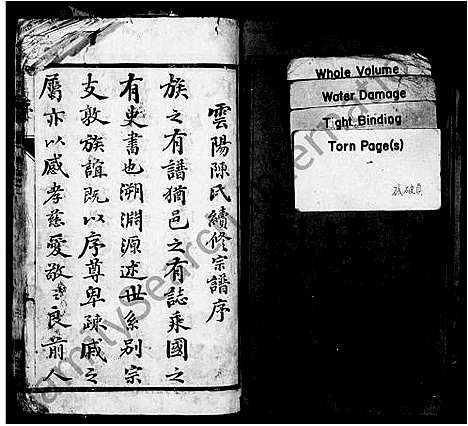 雲陽陳氏續修宗譜序
族之有譜猶邑之有誌乘國之
有史書也溯淵源述世系別宗
支敦族誼既以序尊卑疎戚之
屬亦以感孝慈愛敬之良前人
Whole Volume
Water Damage
Tight Binding
Torn Page(s)
残破頁
FamilySearch